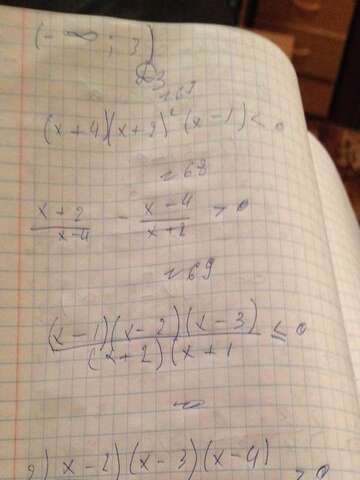 (-∞; 3)
Дз
№67
(x+4)(x+2)²(x-1)<0
№68
x+2/x-4 - x-4/x+2 > 0
№69
(x-1)(x-2)(x-3)/(x+2)(x+1 ≤ 0
x-2)(x-3)(x-4)
>0